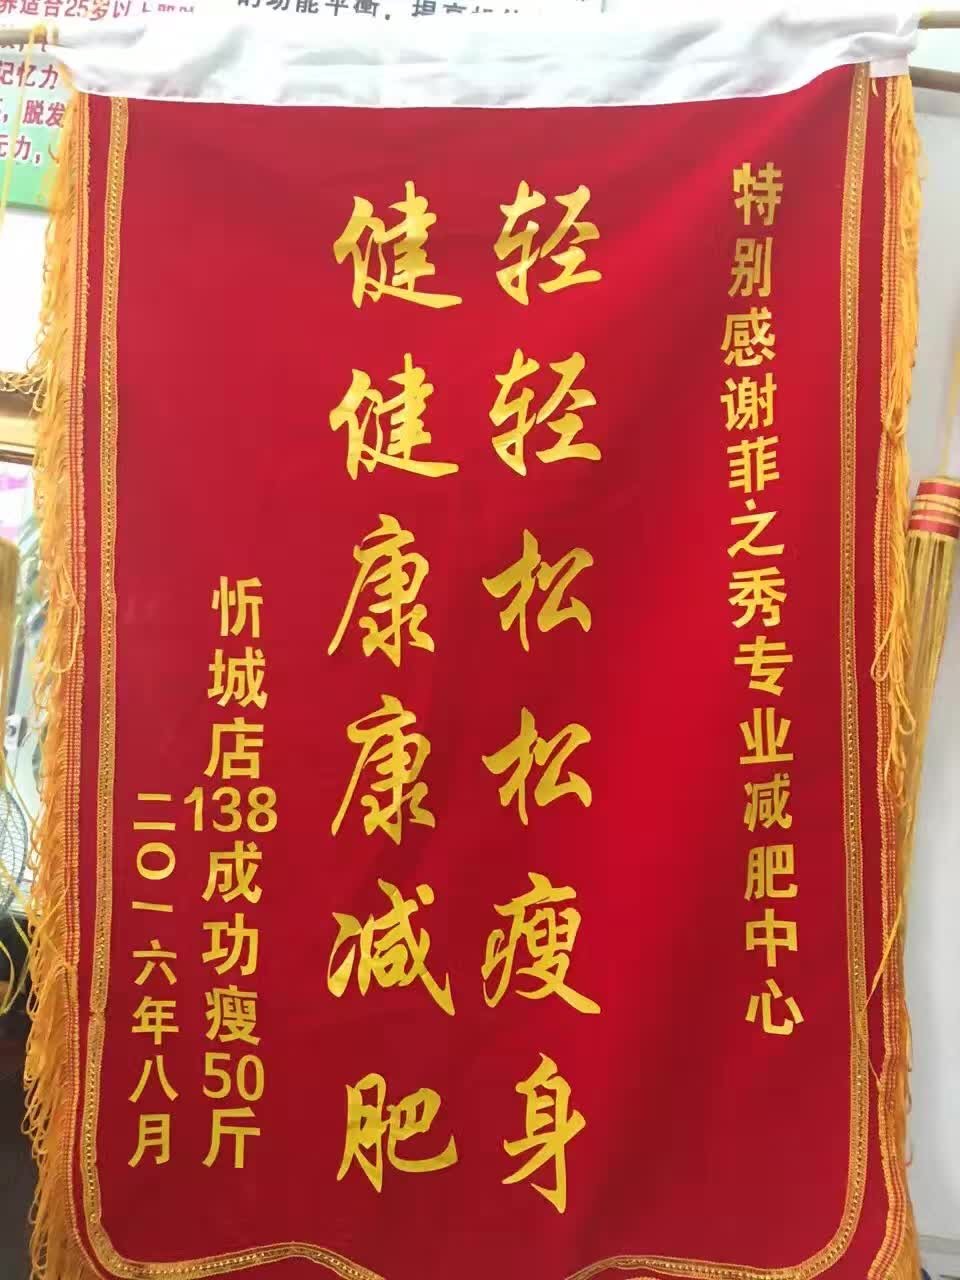 特别感谢菲之秀专业减肥中心
轻轻松松瘦身
健健康康减肥
忻城店138成功瘦50斤
二〇一六年八月
养适合25岁以上
的功能平衡，提高
记忆力
脱发
力，